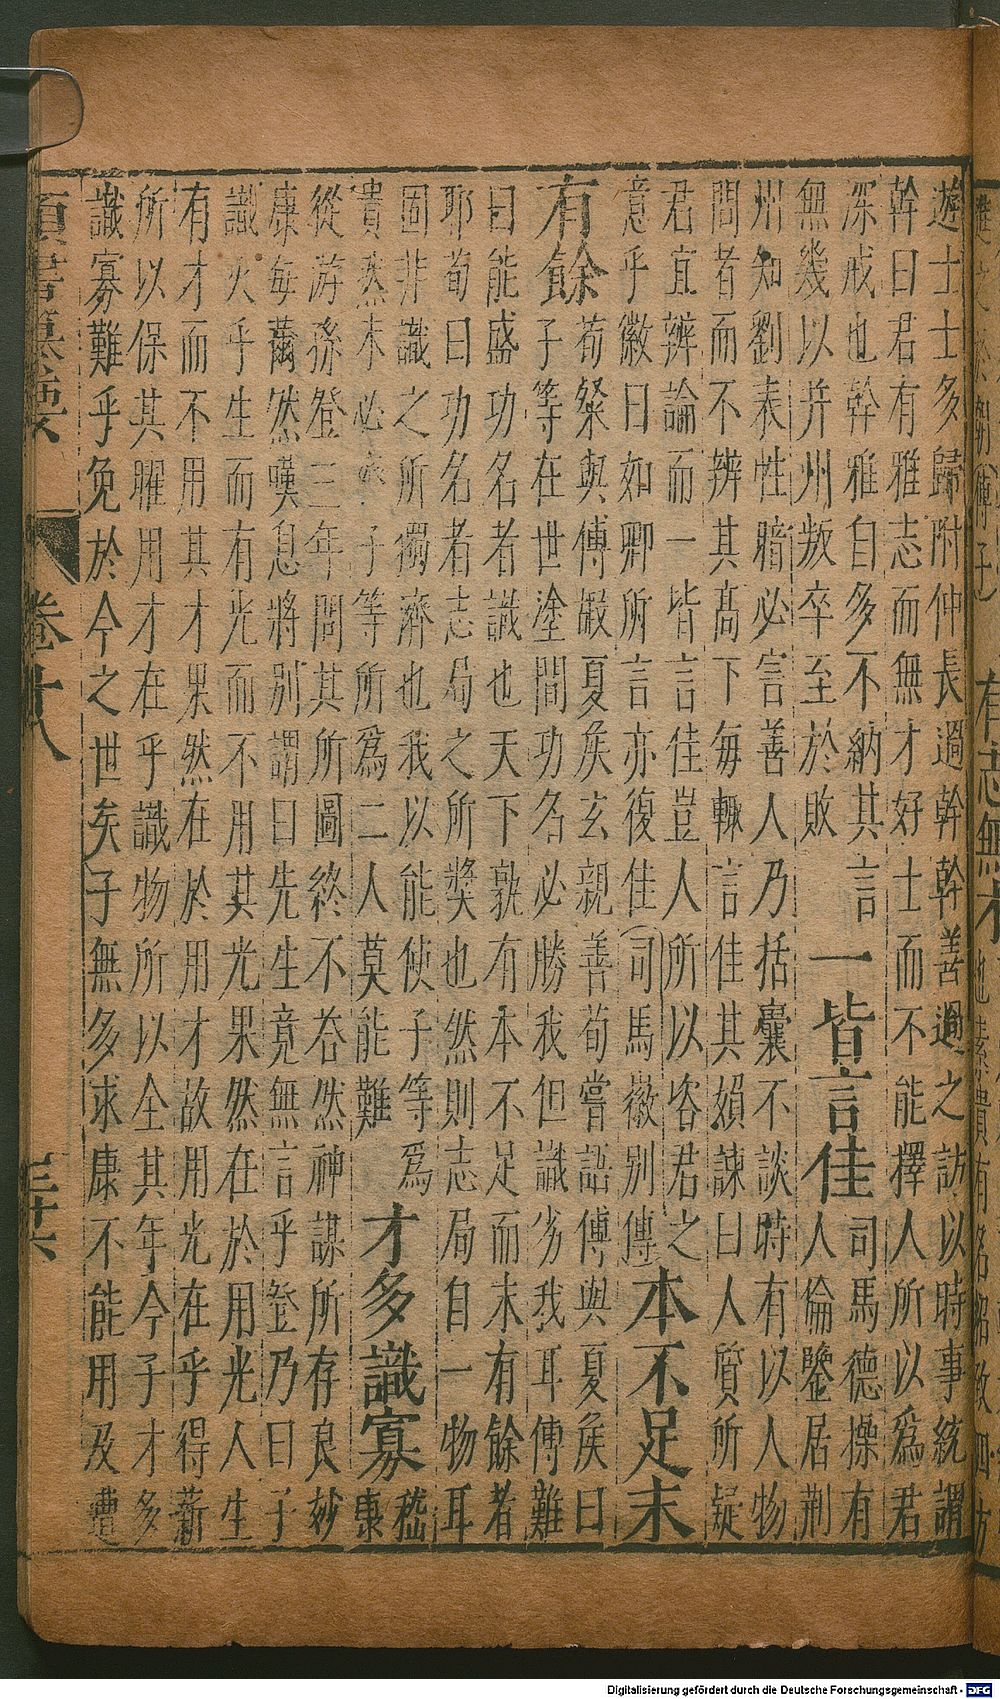 遊士士多歸附仲長過幹幹善遇之訪以時事統謂
幹曰君有雅志而無才好士而不能擇人所以爲君
深戒也幹雅自多不納其言
無幾以并州叛卒至於敗
一皆言佳
司馬德操有
人倫鑒居荆
州知劉表性暗必害善人乃括囊不談時有以人物
問者而不辨其高下每輒言佳其婦諫曰人質所疑
君宜辨論而一皆言佳豈人所以咨君之
意乎徽曰如卿所言亦復佳(司馬徽别傳
本不足末
有餘
荀粲與傅嘏夏矦玄親善荀嘗語傅與夏矦曰
子等在世塗間功名必勝我但識劣我耳傅難
曰能盛功名者識也天下孰有本不足而末有餘者
耶荀曰功名者志局之所奬也然則志局自一物耳
固非識之所獨濟也我以能使子等爲
貴然未必 子等所爲二人莫能難
才多識寡
嵇
康
從游孫登三年問其所圖終不荅然神謀所存良妙
康每薾然嘆息將别謂曰先生竟無言乎登乃曰子
識火乎生而有光而不用其光果然在於用光人生
有才而不用其才果然在於用才故用光在乎得薪
所以保其曜用才在乎識物所以全其年今子才多
識寡難乎免於今之世矣子無多求康不能用及遭
卷 八
有志無才
Digitalisierung gefördert durch die Deutsche Forschungsgemeinschaft - DFG